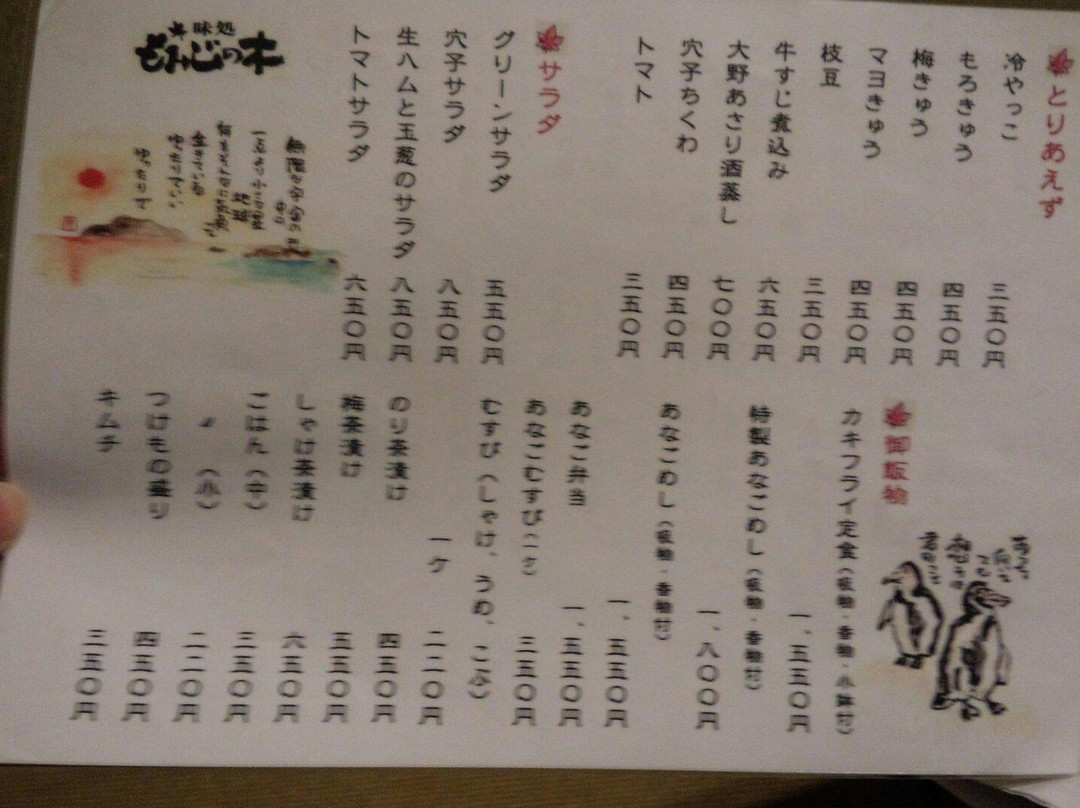 とりあえず
冷やっこ 三五〇円
もろきゅう 四五〇円
梅きゅう 四五〇円
マヨきゅう 四五〇円
枝豆 三五〇円
牛すじ煮込み 六五〇円
大野あさり酒蒸し 七〇〇円
穴子ちくわ 四五〇円
トマト 三五〇円
サラダ
グリーンサラダ 五五〇円
穴子サラダ 八五〇円
生ハムと玉葱のサラダ 八五〇円
トマトサラダ 六五〇円
味処
もみじの木
無限な宇宙の
生きている
ゆったりでいい
ゆったりで
御飯物
カキフライ定食（吸物・香物・小鉢付）
一、五五〇円
特製あなごめし（吸物・香物付）
一、八〇〇円
あなごめし（吸物・香物付）
一、五五〇円
あなご弁当 一、五五〇円
あなごむすび（一ケ） 三五〇円
むすび（しゃけ、うめ、こぶ）
一ケ 二二〇円
のり茶漬け 四五〇円
梅茶漬け 五五〇円
しゃけ茶漬け 六五〇円
ごはん（中） 三五〇円
〃（小） 二二〇円
つけもの盛り 四五〇円
キムチ 三五〇円